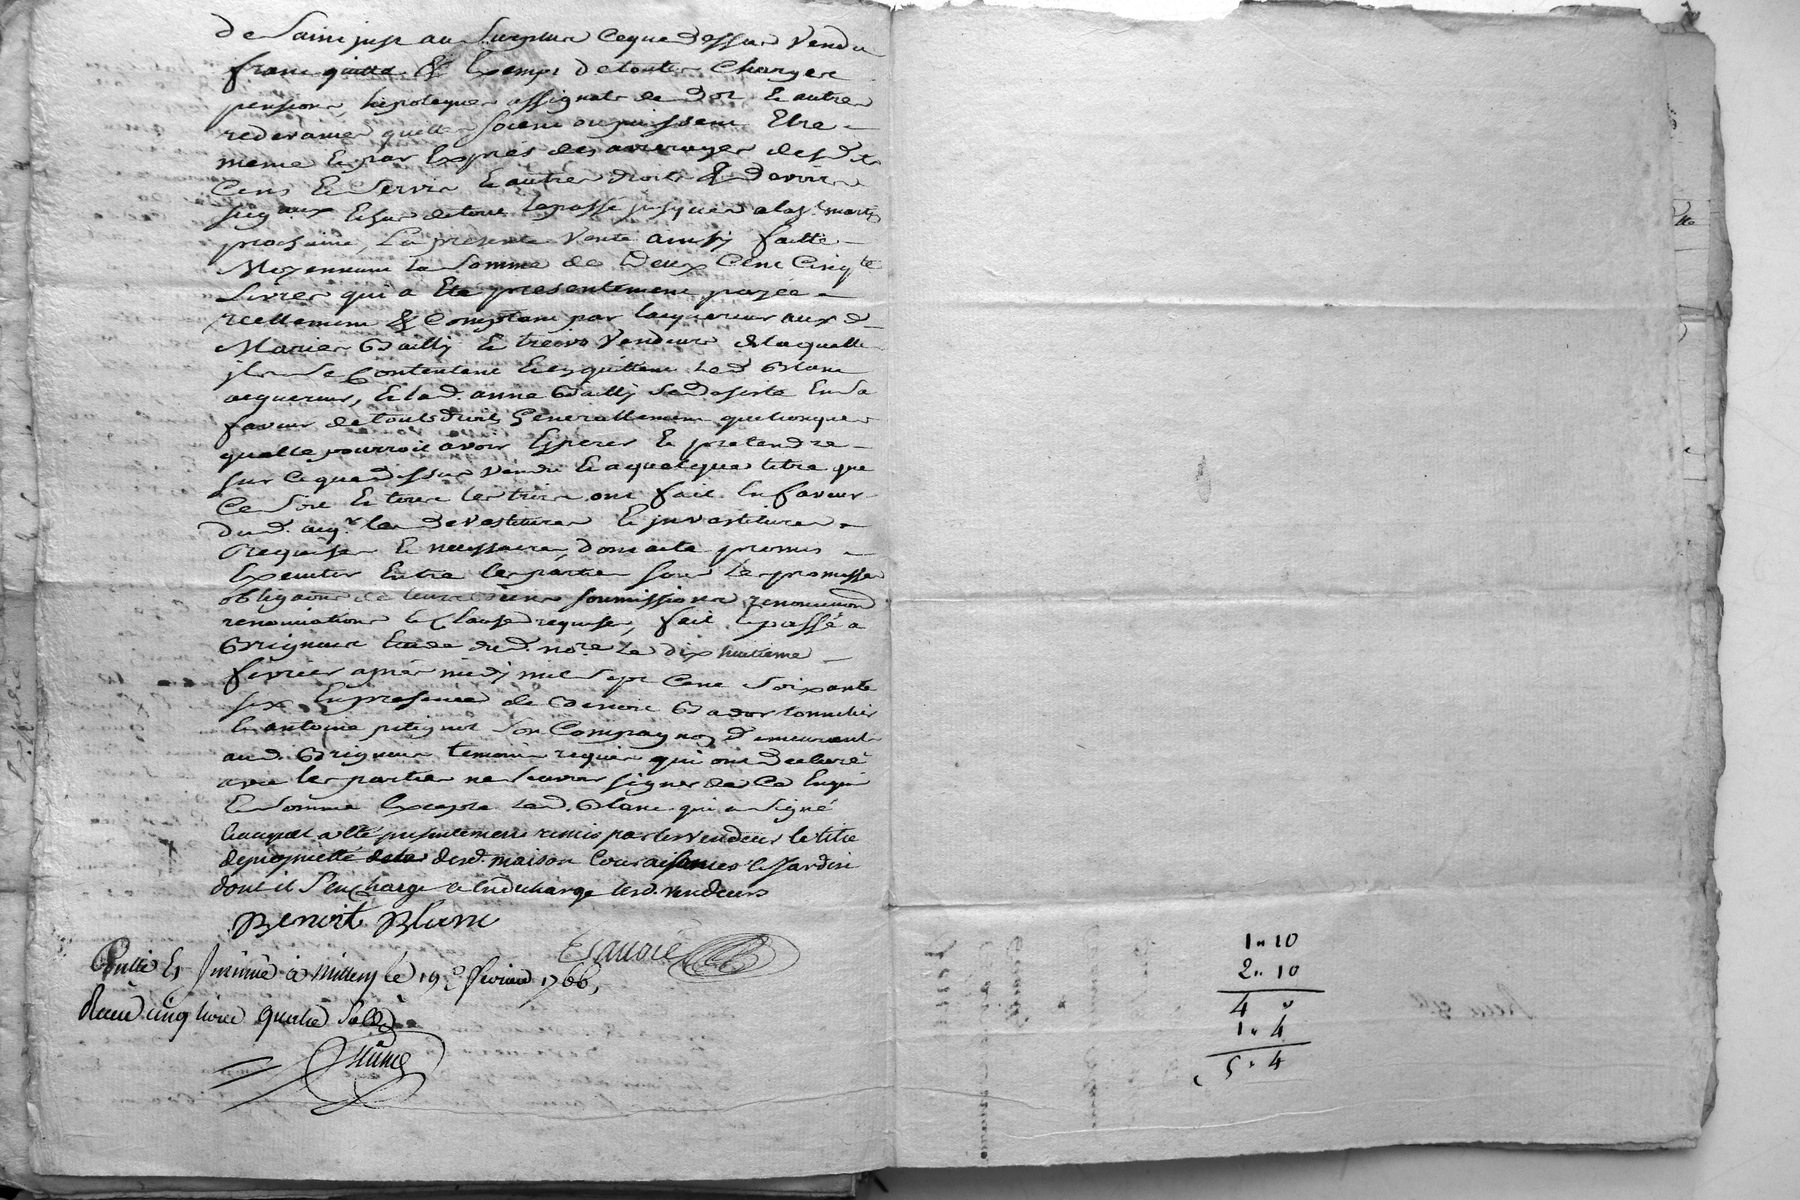 de Saint just au Surplus ce que dessus vendu
franc quitte & Exempt de toutes charges
pensions, hipoteques assignats de dot & autres
redevances quelles soient ou puissent Etre
meme & par Exprés des arrerages desd.
Cens & Servis & autres droits & devoirs
seig.aux & sur de tout le passé jusques a la s.t martin
prochaine, La presente Vente ainsy faitte
Moyennant la somme de Deux Cent Cinq.te
Livres qui a Eté presentement payée
reellement & Comptant par lacquereur aux d.
Maries Bailly & vendeurs de laquelle
ils se Contentent & en quittent led. Blanc
acquereur, & lad. anne Bailly se desiste En sa
faveur de touts droits Generallement quelconques
quelle pourroit avoir Esperer & pretendre
sur ce que dessus vendu & a quelque titre que
Ce soit & tous les trois ont fait En faveur
dud. acq.r les devestitures & investitures
requises & necessaires, dont acte promis
Executer Entre les parties sous les promesses
obligations de leurs biens soumissions,
renonciations & Clauses requises, fait & passé a
Brignais Etude dud. no.re Le dix huitieme
fevrier après midy mil Sept Cent Soixante
six En presence de Benoit Bador tonnelier
& antoine petignot son Compagnon demeurants
aud. Brignais temoins requis qui ont declaré
avec les parties ne sçavoir signer de Ce Enquis
& Sommés Excepté led. Blanc qui a signé
auquel a été presentement remis par les vendeurs le titre
de proprietté desd. maison Cour aisances & Jardin
dont il s'en charge & En decharge lesd. vendeurs
Benoit Blanc
Conllé Et Insinué à Millery le 19.e fevrier 1766,
Receu cinq livres quatre sols
1 " 10
2 " 10
4 "
1 " 4
5 " 4